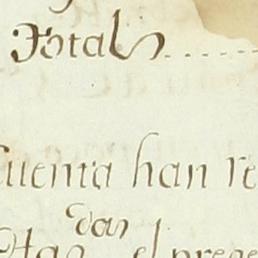 Total
cuenta han re
das
el prese